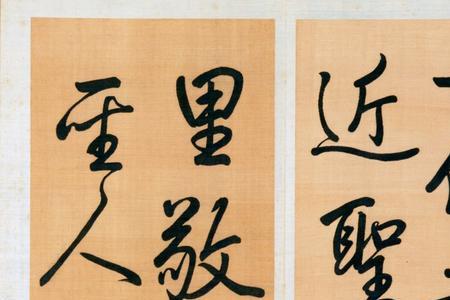 近聖
里敬
至人